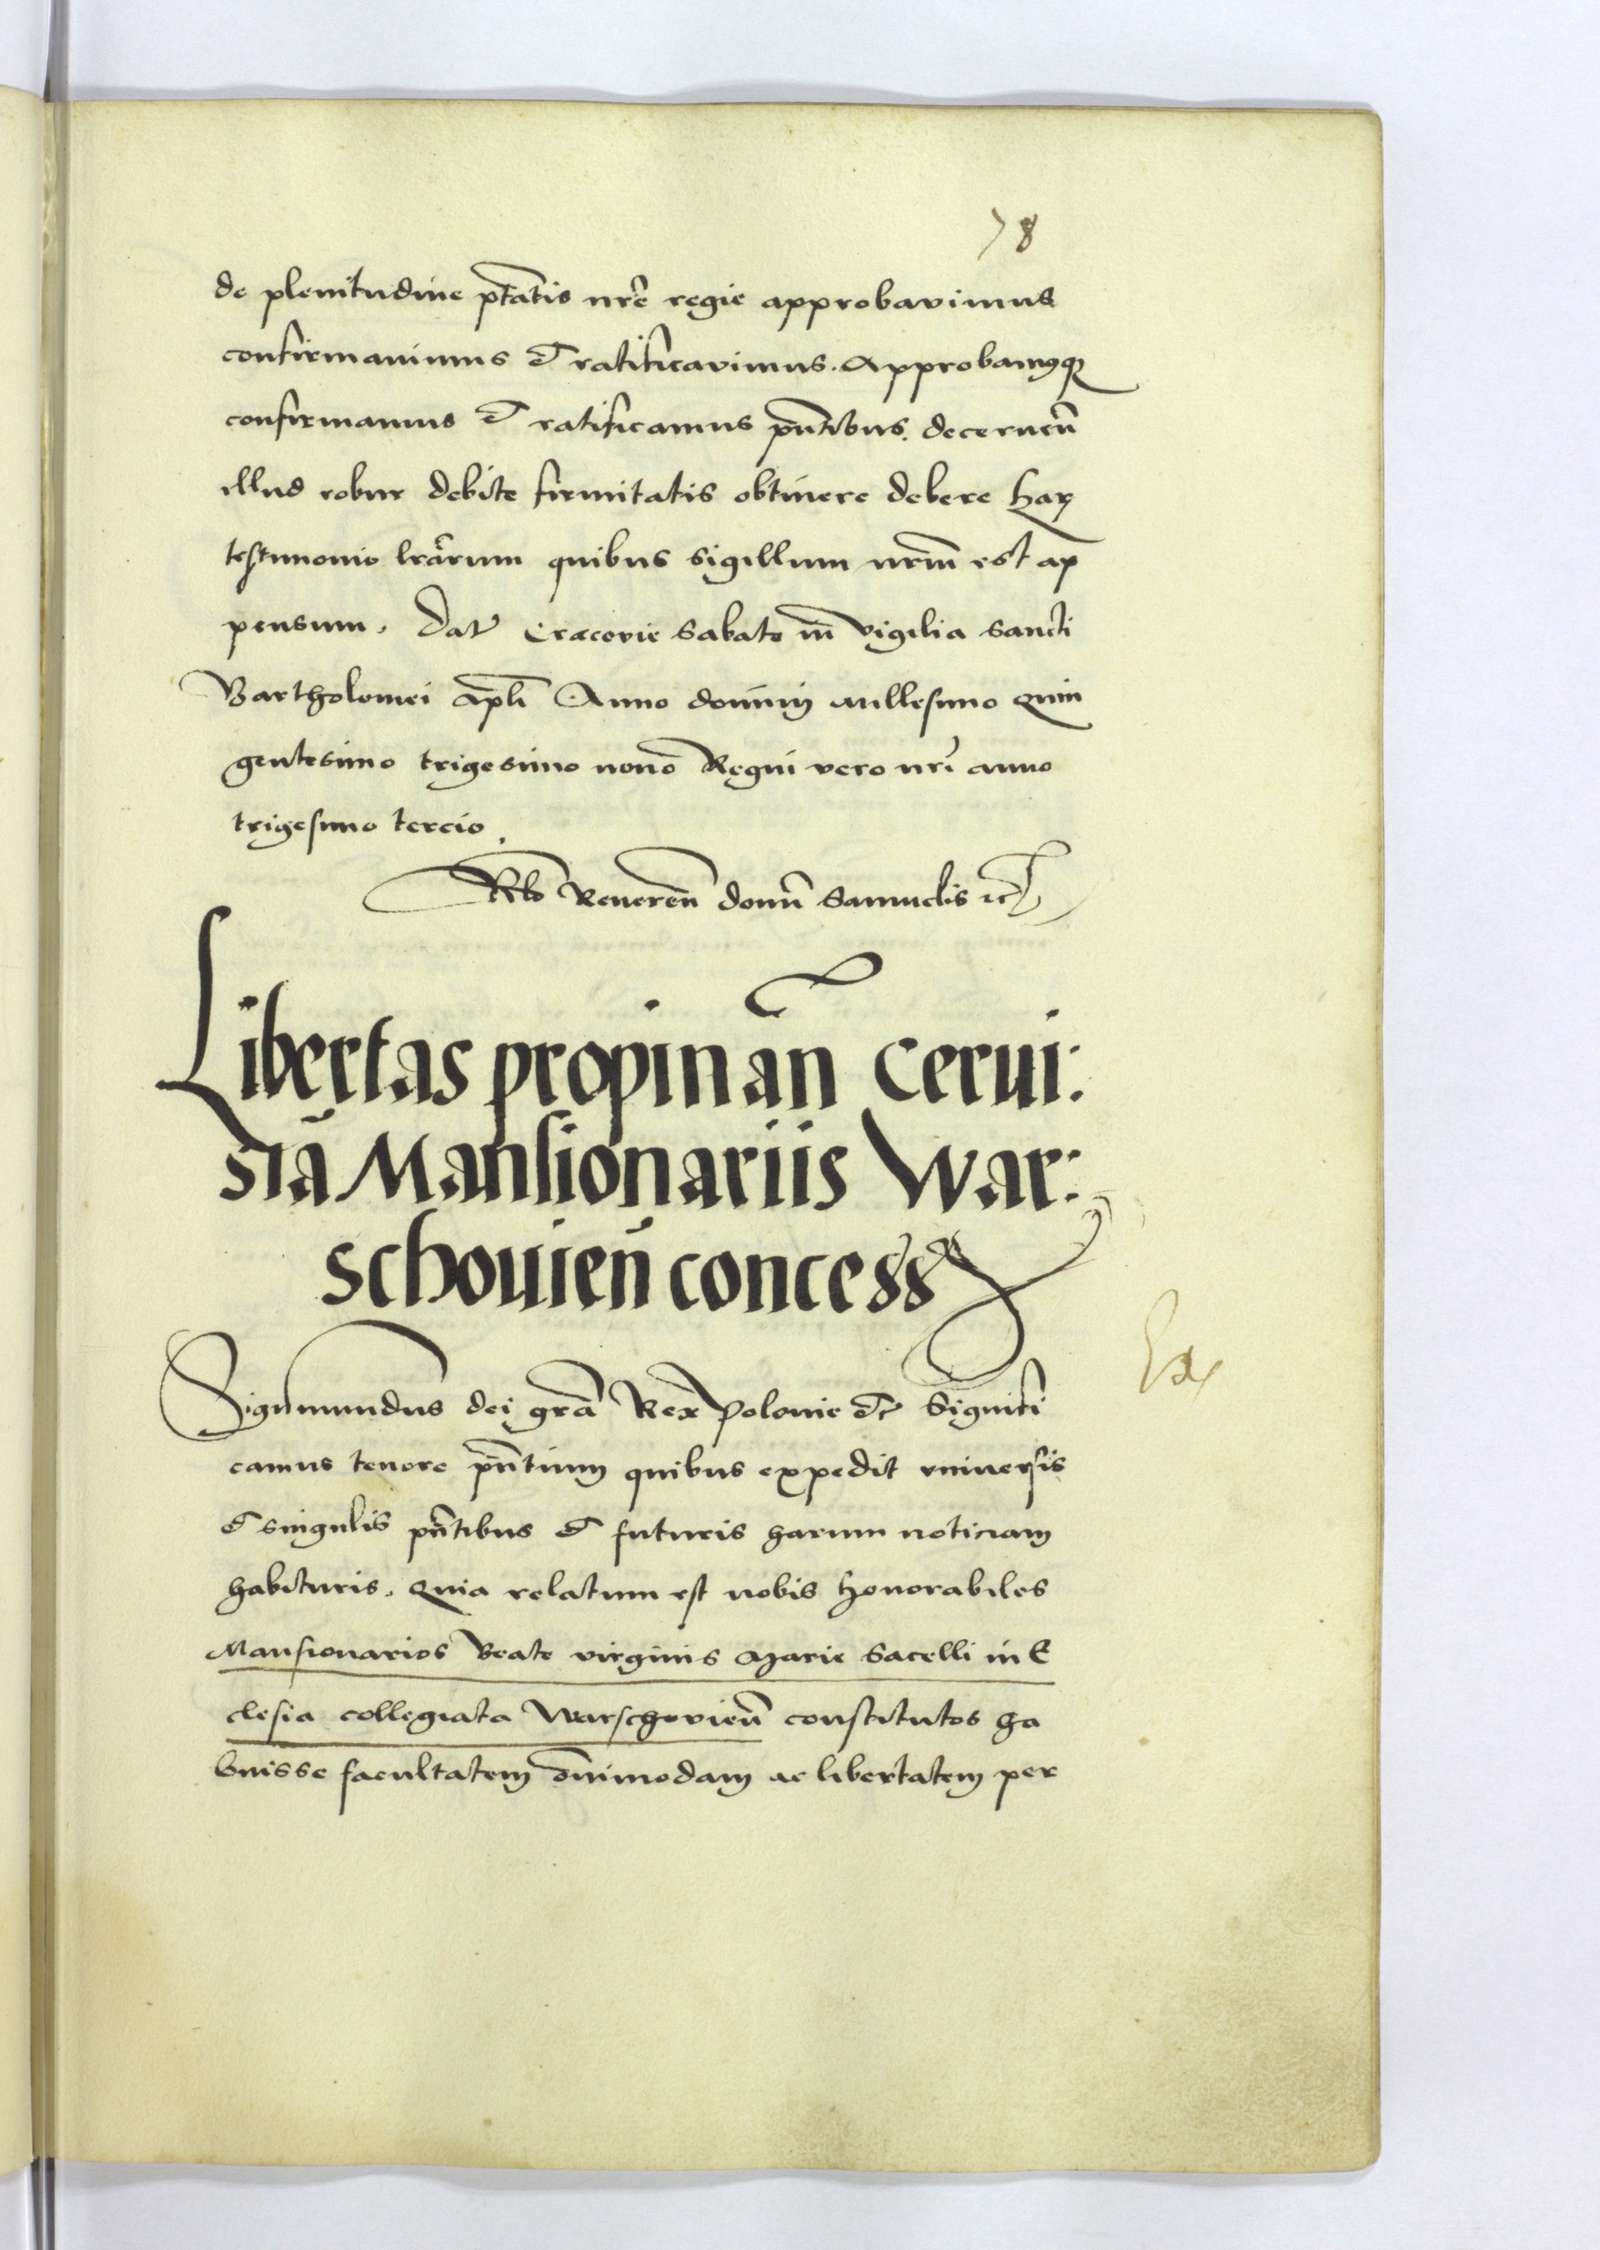 78
de plenitudine ptãtis nrẽ regie approbavimus
confirmavimus et ratificavimus. Approbamusque
confirmamus et ratificamus pñtibus. decernen̄
illud robur debite firmitatis obtinere debere har
testimonio lrãrum quibus sigillum nrm̃ est ap
pensum. Dat̃ Cracovie Sabato in vigilia sancti
Bartholomei apli Anno domini millesimo Quin
gentesimo trigesimo nono Regni vero nrĩ anno
trigesimo tercio.
Rlo Reveren̄ domn̄ Samuelis etc
Libertas propinan̄ Cerui:
siã Mansionariis War:
schouien̄ concess
Sigismundus dei grã Rex Polonie etc Signifi
camus tenore pñtium quibus expedit universis
et singulis pñtibus et futuris harum noticiam
habituris. Quia relatum est nobis honorabiles
Mansionarios Beate virginis Marie Sacelli in E
clesia collegiata Warschovien̄ constitutos ha
buisse facultatem om̃imodam ac libertatem per